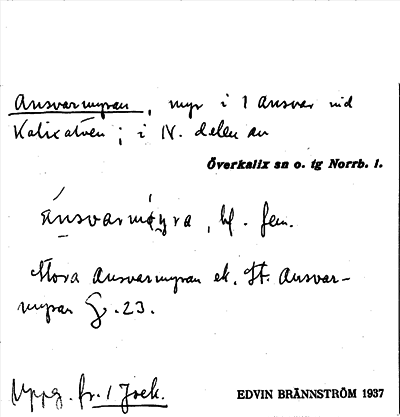 Ansvarmyran, myr i 1 Ansvar vid
Kalixälven; i N. delen av
Överkalix sn o. tg Norrb. l.
ánsvarmýra, bf. fem.
Stora Ansvarmyran ek. St. Ansvar-
myran G. 23.
Uppg. fr. 1 Joek.
EDVIN BRÄNNSTRÖM 1937